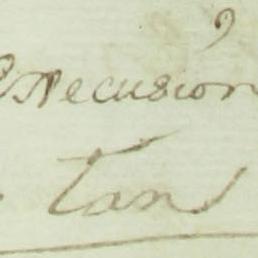 Execusion
tan